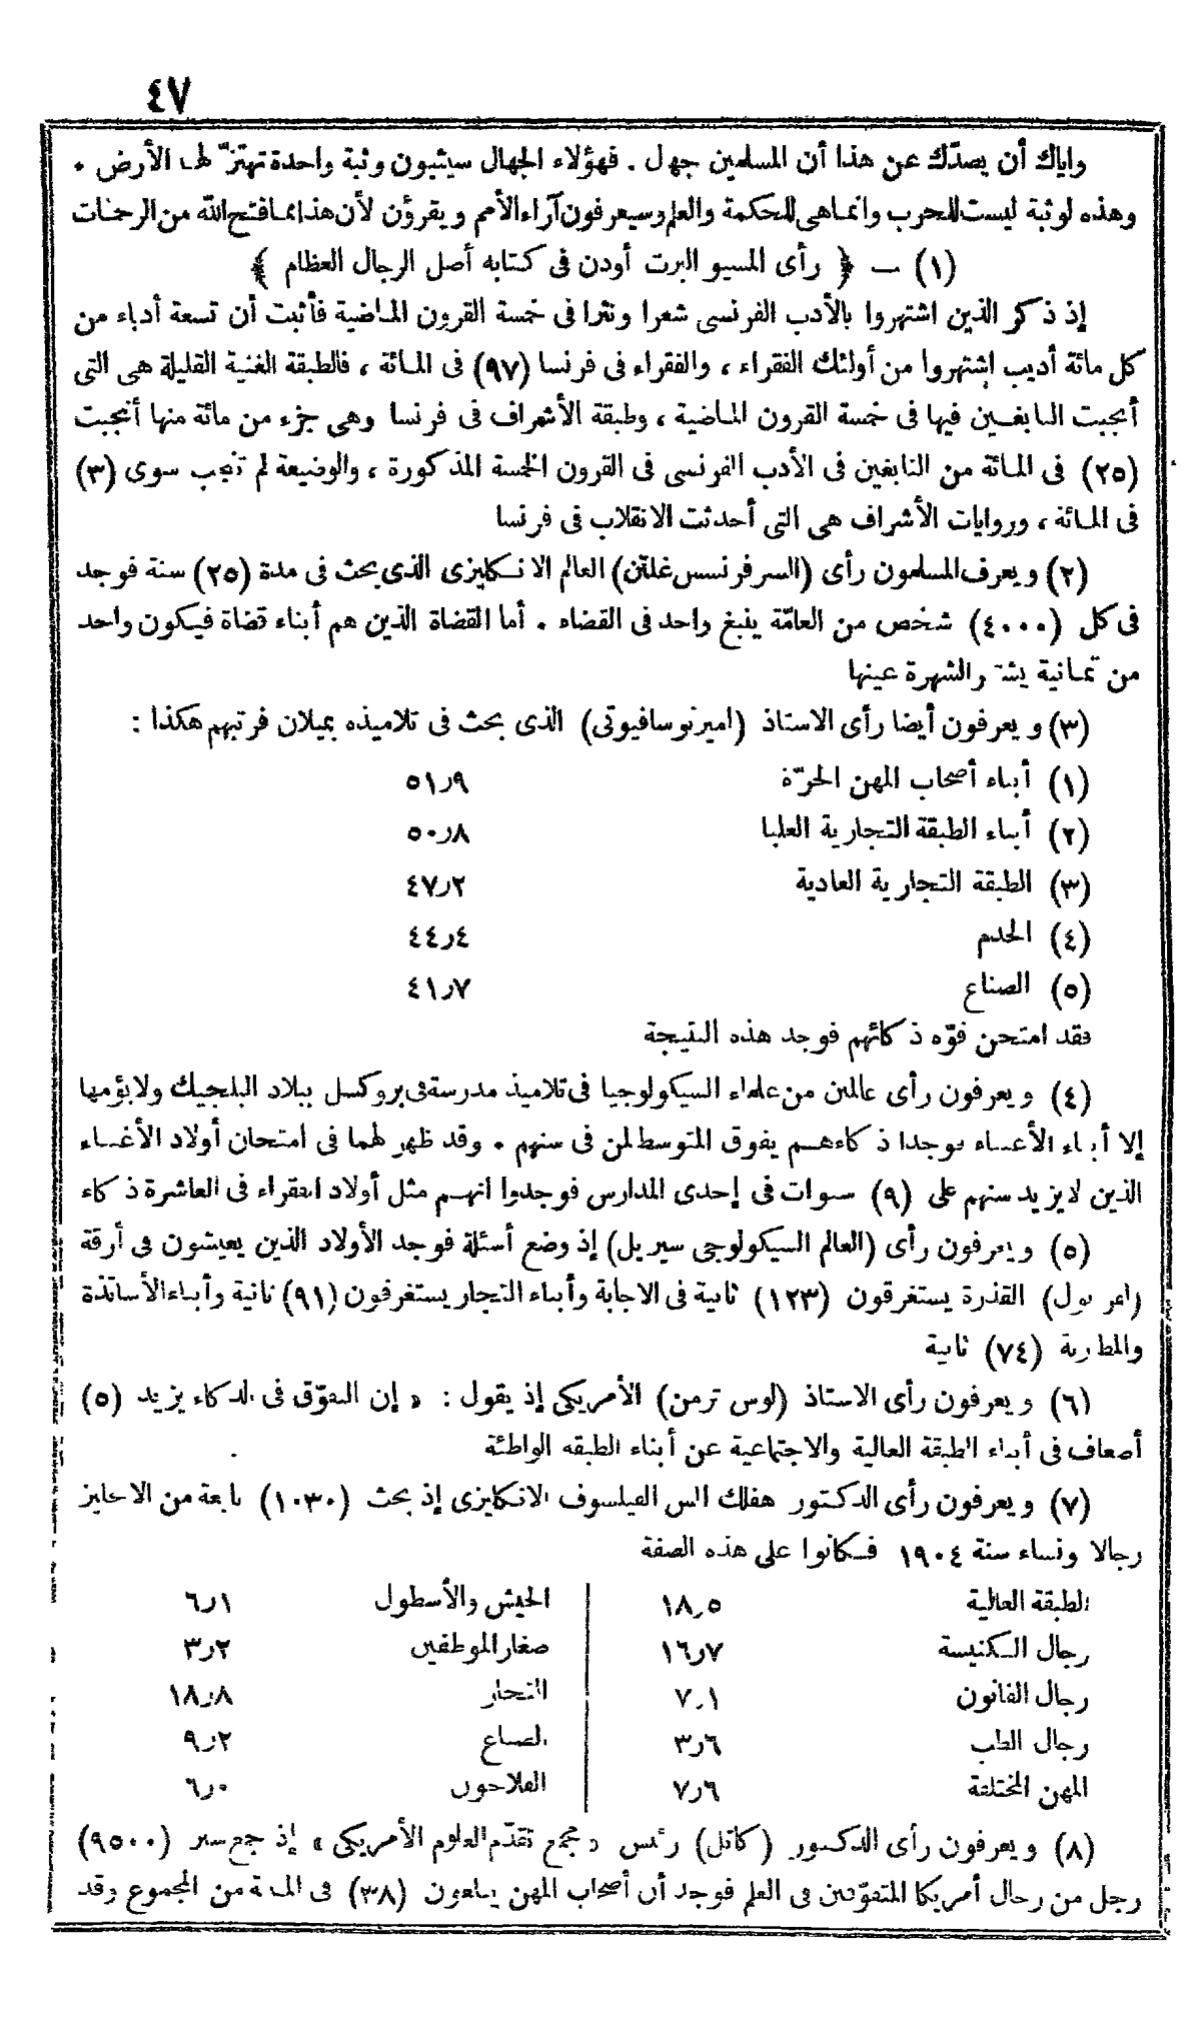 ٤٧
واياك أن يصدّك عن هذا أن المسلمين جهال . فهؤلاء الجهال سيثبون وثبة واحدة تهتزّ لها الأرض .
وهذه لوثبة ليست للحرب وانما هى للحكمة والعلم وسيعرفون آراء الأمم ويقرؤن لأن هذا مما فتح الله من الرحمات
(١) — ﴿ رأى المسيو البرت أودن فى كتابه أصل الرجال العظام ﴾
إذ ذكر الذين اشتهروا بالأدب الفرنسى شعرا ونثرا فى خمسة القرون الماضية فأثبت أن تسعة أدباء من
كل مائة أديب اشتهروا من أولئك الفقراء ، والفقراء فى فرنسا (٩٧) فى المائة ، فالطبقة الغنية القليلة هى التى
أنجبت النابغين فيها فى خمسة القرون الماضية ، وطبقة الأشراف فى فرنسا وهى جزء من مائة منها أنجبت
(٢٥) فى المائة من النابغين فى الأدب الفرنسى فى القرون الخمسة المذكورة ، والوضيعة لم تنجب سوى (٣)
فى المائة ، وروايات الأشراف هى التى أحدثت الانقلاب فى فرنسا
(٢) ويعرف المسلمون رأى (السر فرنسس غلتن) العالم الانكليزى الذى بحث فى مدة (٢٥) سنة فوجد
فى كل (٤٠٠٠) شخص من العامّة ينبغ واحد فى القضاء . أما القضاة الذين هم أبناء قضاة فيكون واحد
من ثمانية والشهرة عينها
(٣) ويعرفون أيضا رأى الاستاذ (اميرنوسافيوتى) الذى بحث فى تلاميذه بميلان فرتبهم هكذا :
(١) أبناء أصحاب المهن الحرّة ٥١٫٩
(٢) أبناء الطبقة التجارية العليا ٥٠٫٨
(٣) الطبقة التجارية العادية ٤٧٫٢
(٤) الخدم ٤٤٫٤
(٥) الصناع ٤١٫٧
فقد امتحن قوّة ذكائهم فوجد هذه النتيجة
(٤) ويعرفون رأى عالمين من علماء السيكولوجيا فى تلاميذ مدرسة فى بروكسل ببلاد البلجيك ولا يؤمها
إلا أبناء الأغنياء فوجدا ذكاءهم يفوق المتوسط لمن فى سنهم . وقد ظهر لهما فى امتحان أولاد الأغنياء
الذين لا يزيد سنهم على (٩) سنوات فى إحدى المدارس فوجدوا انهم مثل أولاد الفقراء فى العاشرة ذكاء
(٥) ويعرفون رأى (العالم السيكولوجى سيريل) إذ وضع أسئلة فوجد الأولاد الذين يعيشون فى أزقة
القذرة يستغرقون (١٢٣) ثانية فى الاجابة وأبناء التجار يستغرقون (٩١) ثانية وأبناء الأساتذة
والمطارنة (٧٤) ثانية
(٦) ويعرفون رأى الاستاذ (لوس ترمن) الأمريكى إذ يقول : « إن التفوّق فى الذكاء يزيد (٥)
أضعاف فى أبناء الطبقة العالية والاجتماعية عن أبناء الطبقة الواطئة
(٧) ويعرفون رأى الدكتور هفلك الس الفيلسوف الانكليزى إذ بحث (١٠٣٠) نابغة من الانجليز
رجالا ونساء سنة ١٩٠٤ فكانوا على هذه الصفة
الطبقة العالية ١٨٫٥ الجيش والأسطول ٦٫١
رجال الكنيسة ١٦٫٧ صغار الموظفين ٣٫٢
رجال القانون ٧٫١ التجار ١٨٫٨
رجال الطب ٣٫٦ الصناع ٩٫٢
المهن المختلفة ٧٫٦ الفلاحون ٦٫٠
(٨) ويعرفون رأى الدكتور (كاتل) رئيس « مجمع تقدّم العلوم الأمريكى » إذ جمع سير (٩٥٠٠)
رجل من رجال أمريكا المتفوّقين فى العلم فوجد أن أصحاب المهن يبلغون (٣٨) فى المائة من المجموع وقد